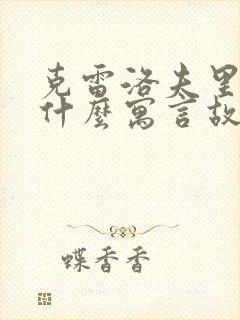 克雷洛夫里
什麼寓言故
蝶香香